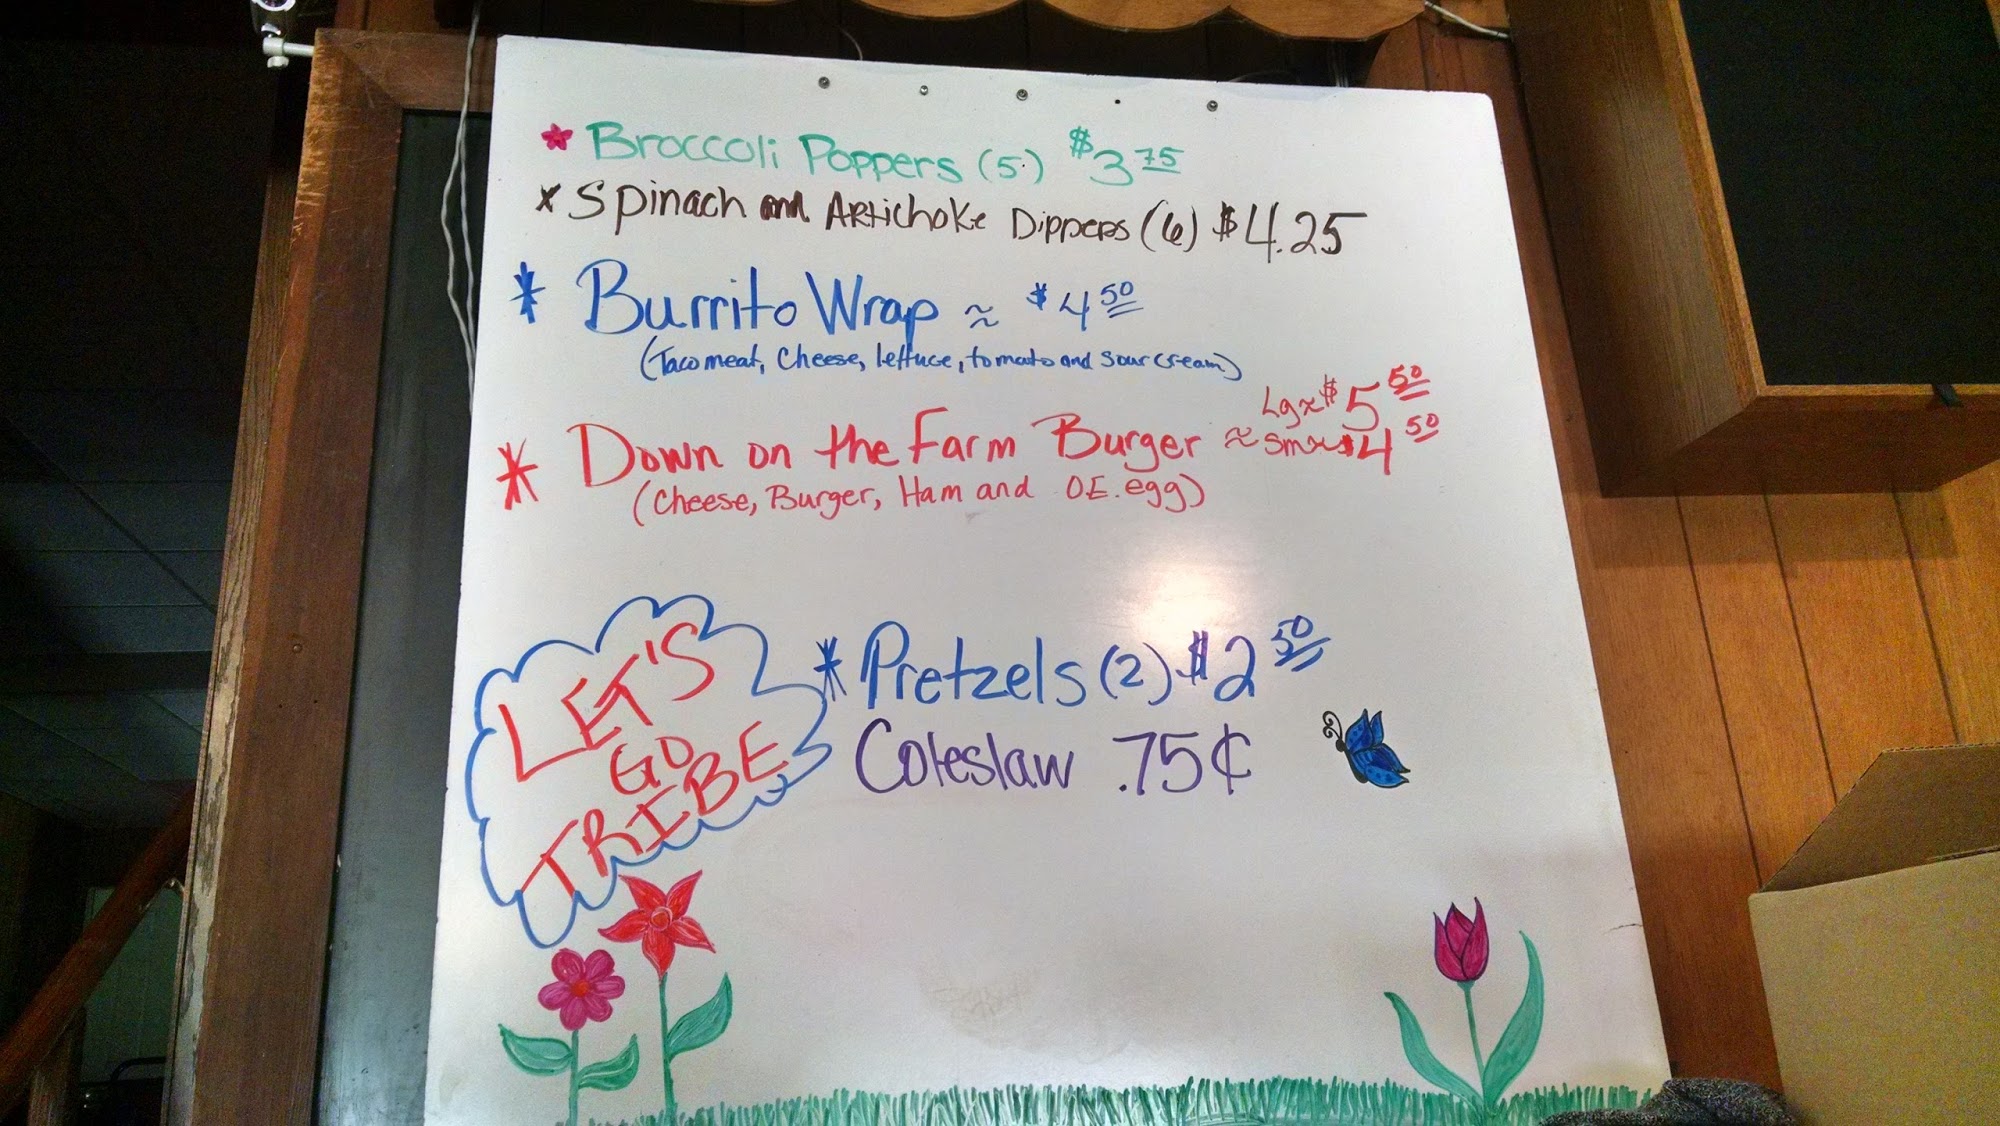 * Broccoli Poppers (5) $3.75
* Spinach and Artichoke Dippers (6) $4.25
* Burrito Wrap ≈ $4.50
(Taco meat, Cheese, lettuce, tomato and sour cream)
Lg ~ $5.50
* Down on the Farm Burger ≈ sm ~ $4.50
(Cheese, Burger, Ham and O.E. egg)
LET'S
GO
TRIBE
* Pretzels (2) $2.50
Coleslaw .75¢